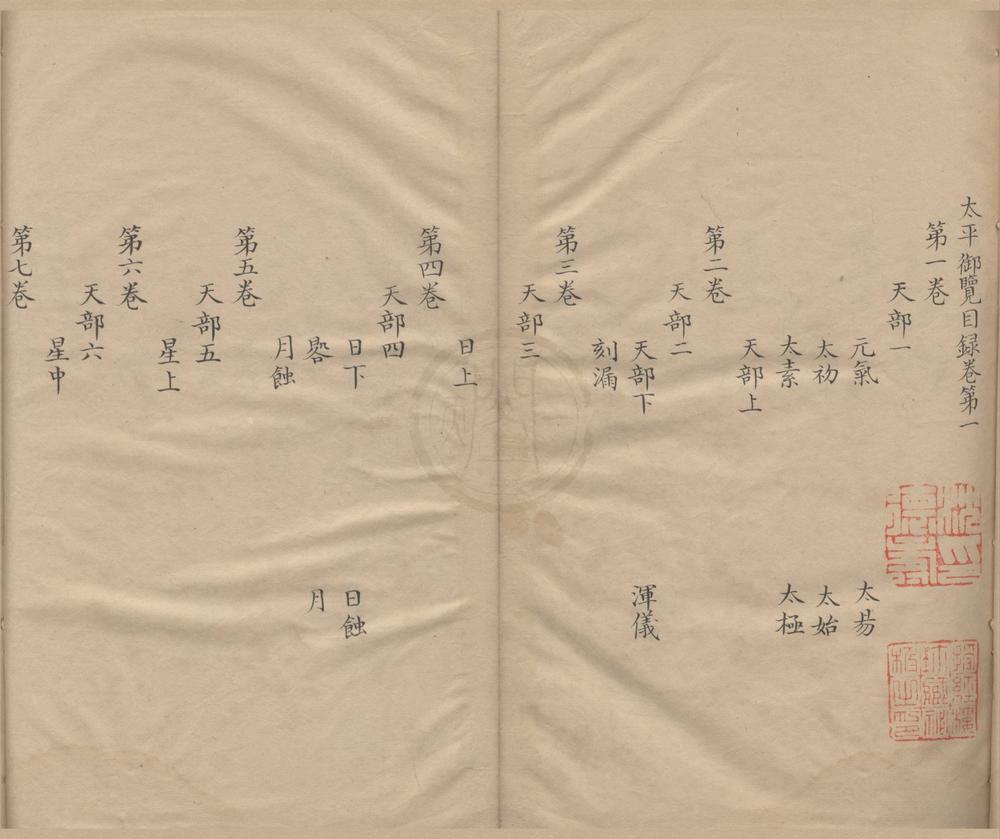 太平御覽目録卷第一
第一卷
天部一
元氣 太易
太初 太始
太素 太極
天部上
第二卷
天部二
天部下 渾儀
刻漏
第三卷
天部三
日上
第四卷
天部四
日下 日蝕
晷 月
月蝕
第五卷
天部五
星上
第六卷
天部六
星中
第七卷